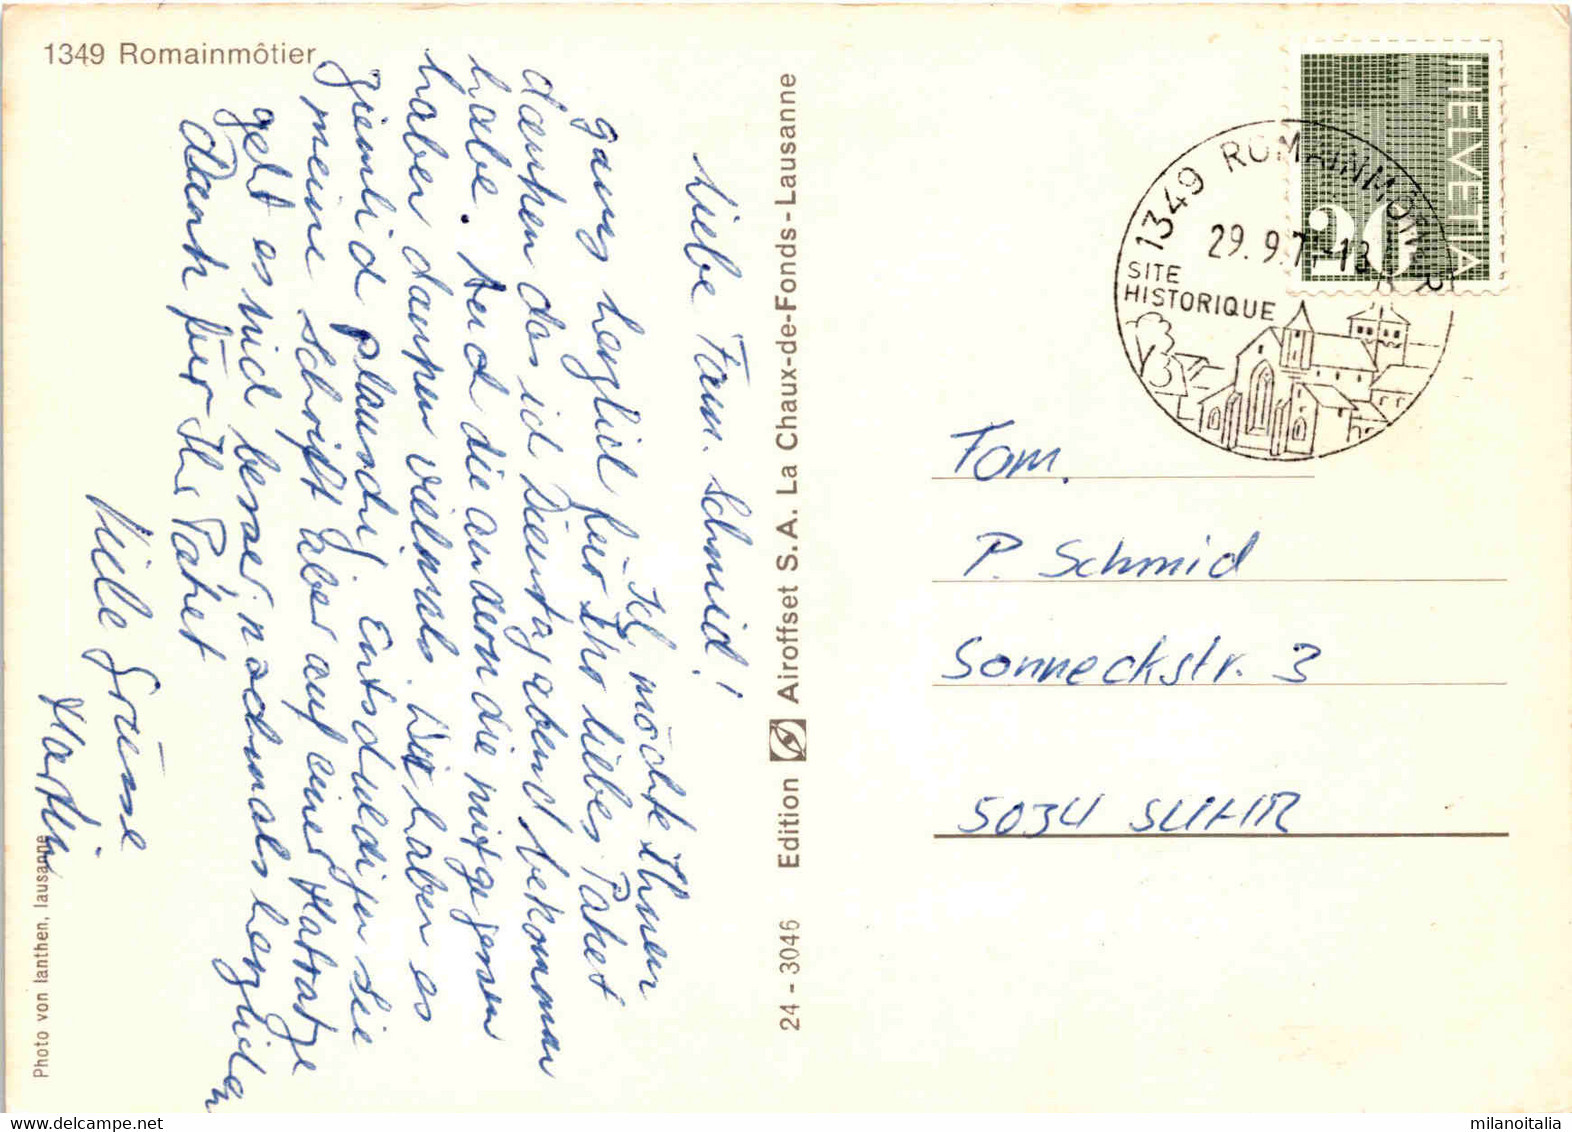 1349 Romainmôtier
Liebe Fam. Schmid!
Ich möchte Ihnen
ganz herzlich für Ihr liebes Paket
danken das ich Dienstagabend bekommen
habe. Auch die andern die mitgegessen
haben danken vielmals. Wir haben es
ziemlich plaundrig Entschuldigen Sie
meine Schrift aber auf einer Matratze
geht es nicht besser nochmals herzlichen
Dank für Ihr Paket
Viele Grüsse
Martin
Photo von Ianthen, lausanne
24 - 3046 Edition Airoffset S.A. La Chaux-de-Fonds - Lausanne
HELVETIA
20
1349 ROMAINMÔTIER
29.9.7 -13
SITE
HISTORIQUE
Fam.
P. Schmid
Sonneckstr. 3
5034 SUHR
milanoitalia